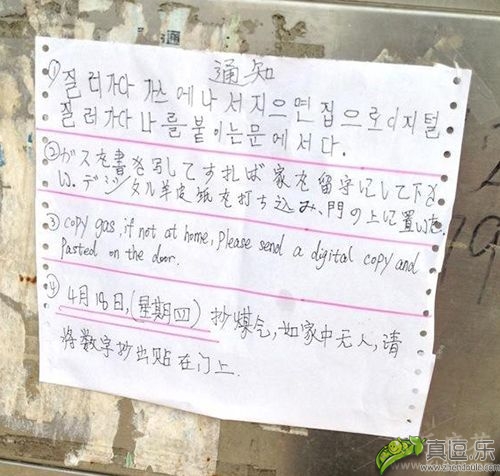 通知
① 질러가다 가스에나 서지으면집으로디지털
질러가다나를붙이는문에서다.
② ガスを書き写してすれば家を留守にして下さ
い.デジタル羊皮紙を打ち込み、門の上に置いた.
③ copy gas, if not at home, Please send a digital copy and
Pasted on the door.
④ 4月18日,(星期四) 抄煤气,如家中无人,请
将数字抄出贴在门上.
真逗.乐
www.zhendoule.com